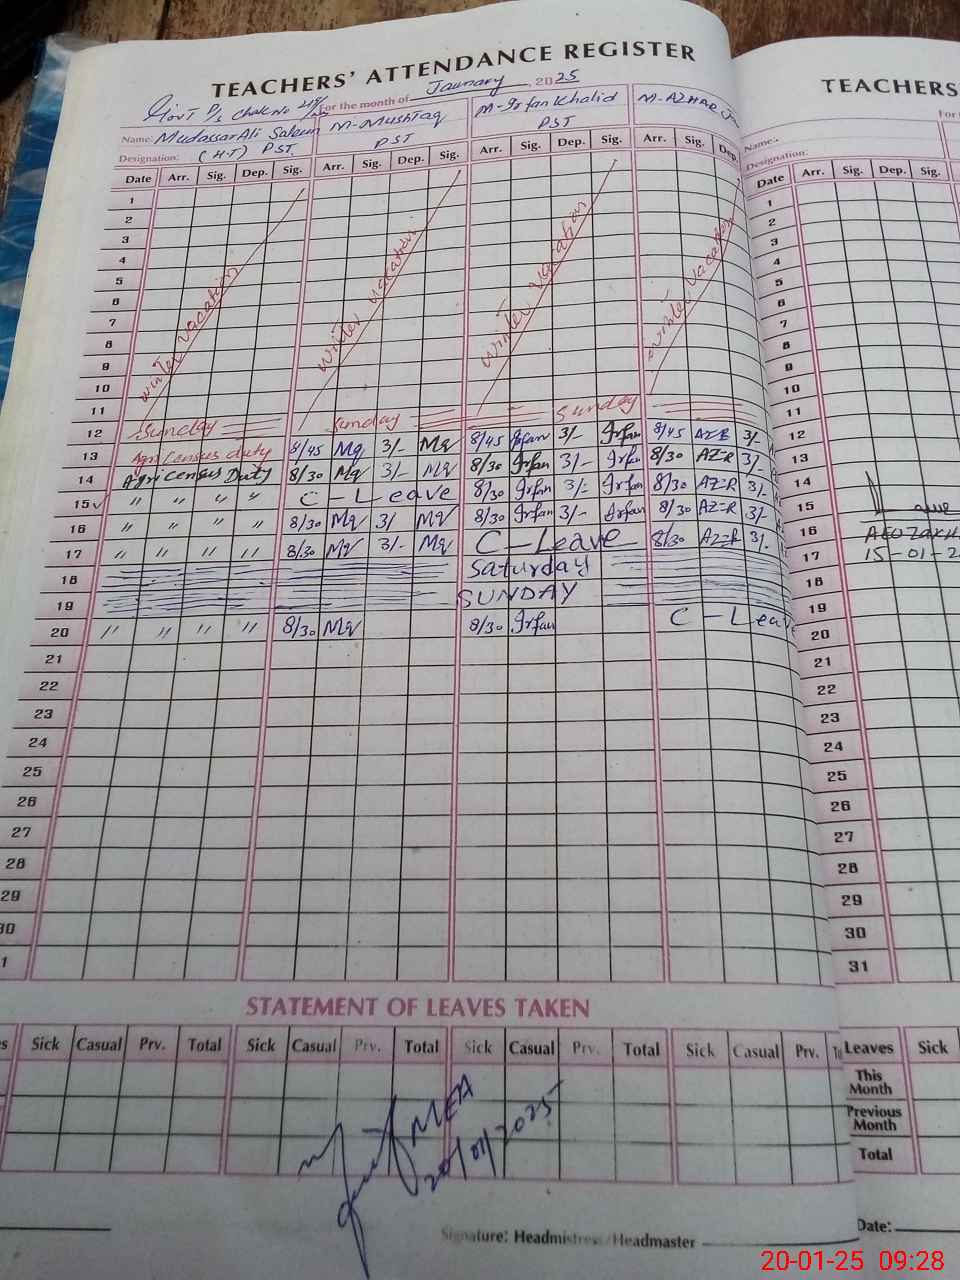 TEACHERS' ATTENDANCE REGISTER
Govt P/S Chak No For the month of Jaunary 2025
Name: Mudassar Ali Saleem M-Mushtaq M-Irfan Khalid M-AZHAR
Designation: (H-T) PST PST PST
Date Arr. Sig. Dep. Sig. Arr. Sig. Dep. Sig. Arr. Sig. Dep. Sig. Arr. Sig. Dep.
1
2
3
4
5
6
7
8
9
10
11
winter vacation winter vacation winter vacation winter vacation
12 Sunday Sunday Sunday
13 Agri Census duty 8/45 Mq 3/- Mq 8/45 Irfan 3/- Irfan 8/45 AZ=R 3/-
14 Agri census Duty 8/30 Mq 3/- Mq 8/30 Irfan 3/- Irfan 8/30 AZ=R 3/-
15 ✓ " " " " C - Leave 8/30 Irfan 3/- Irfan 8/30 AZ=R 3/-
16 " " " " 8/30 Mq 3/ Mq 8/30 Irfan 3/- Irfan 8/30 AZ=R 3/-
17 " " " " 8/30 Mq 3/- Mq C - Leave 8/30 AZ=R 3/-
18 Saturday
19 SUNDAY
20 " " " " 8/30 Mq 8/30 Irfan C - Leave
21
22
23
24
25
26
27
28
29
30
1
STATEMENT OF LEAVES TAKEN
Sick Casual Prv. Total Sick Casual Prv. Total Sick Casual Prv. Total Sick Casual Prv.
MEA
20/01/2025
Signature: Headmistress/Headmaster
TEACHERS
For
Name:
Designation:
Date Arr. Sig. Dep. Sig.
1
2
3
4
5
6
7
8
9
10
11
12
13
14
15
16 AEO
17 15-01-2
18
19
20
21
22
23
24
25
26
27
28
29
30
31
Leaves Sick
This Month
Previous Month
Total
Date:
20-01-25 09:28